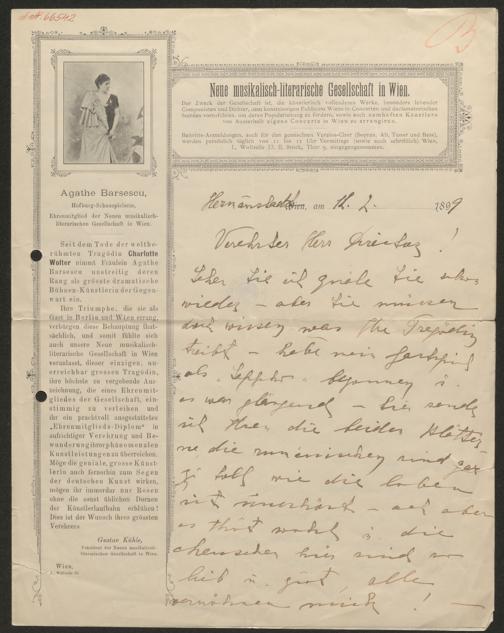 Neue musikalisch-literarische Gesellschaft in Wien.
Der Zweck der Gesellschaft ist, die künstlerisch vollendeten Werke, besonders lebender
Componisten und Dichter, dem kunstsinnigen Publicum Wiens in Concerten und declamatorischen
Soiréen vorzuführen, um deren Popularisirung zu fördern, sowie auch namhaften Künstlern
von Ausserhalb eigene Concerte in Wien zu arrangiren.
Beitritts-Anmeldungen, auch für den gemischten Vereins-Chor (Sopran, Alt, Tenor und Bass),
werden persönlich täglich von 11 bis 12 Uhr Vormittags (sowie auch schriftlich) Wien,
I., Wollzeile 23, II. Stock, Thür 9, entgegengenommen.
Agathe Barsescu,
Hofburg-Schauspielerin,
Ehrenmitglied der Neuen musikalisch-
literarischen Gesellschaft in Wien.
Seit dem Tode der weltbe-
rühmten Tragödin Charlotte
Wolter nimmt Fräulein Agathe
Barsescu unstreitig deren
Rang als grösste dramatische
Bühnen-Künstlerin der Gegen-
wart ein.
Ihre Triumphe, die sie als
Gast in Berlin und Wien errang,
verbürgen diese Behauptung that-
sächlich, und somit fühlte sich
auch unsere Neue musikalisch-
literarische Gesellschaft in Wien
veranlasst, dieser einzigen, un-
erreichbar grossen Tragödin,
ihre höchste zu vergebende Aus-
zeichnung, die eines Ehrenmit-
gliedes der Gesellschaft, ein-
stimmig zu verleihen und
ihr ein prachtvoll ausgestattetes
„Ehrenmitglieds-Diplom" in
aufrichtiger Verehrung und Be-
wunderung ihrer phänomenalen
Kunstleistungen zu überreichen.
Möge die geniale, grosse Künst-
lerin auch fernerhin zum Segen
der deutschen Kunst wirken,
mögen ihr immerdar nur Rosen
ohne die sonst üblichen Dornen
der Künstlerlaufbahn erblühen!
Dies ist der Wunsch ihres grössten
Verehrers
Gustav Kühle,
Präsident der Neuen musikalisch-
literarischen Gesellschaft in Wien.
Wien,
I., Wollzeile 23.
Hermannstadt Wien, am 12. 2. 1899
Verehrter Herr Director!
Sehen Sie ich quäle Sie schon
wieder – aber Sie müssen
doch wissen was Ihr
treibt – habe mein Gastspiel
als Sappho begonnen u.
es war glänzend – hier sende
ich Ihnen die beiden Blätter
die sind
wie die
nicht – ach aber
es thut wohl u. die
Menschen hier sind so
lieb u. gut, alle
verwöhnen mich! –